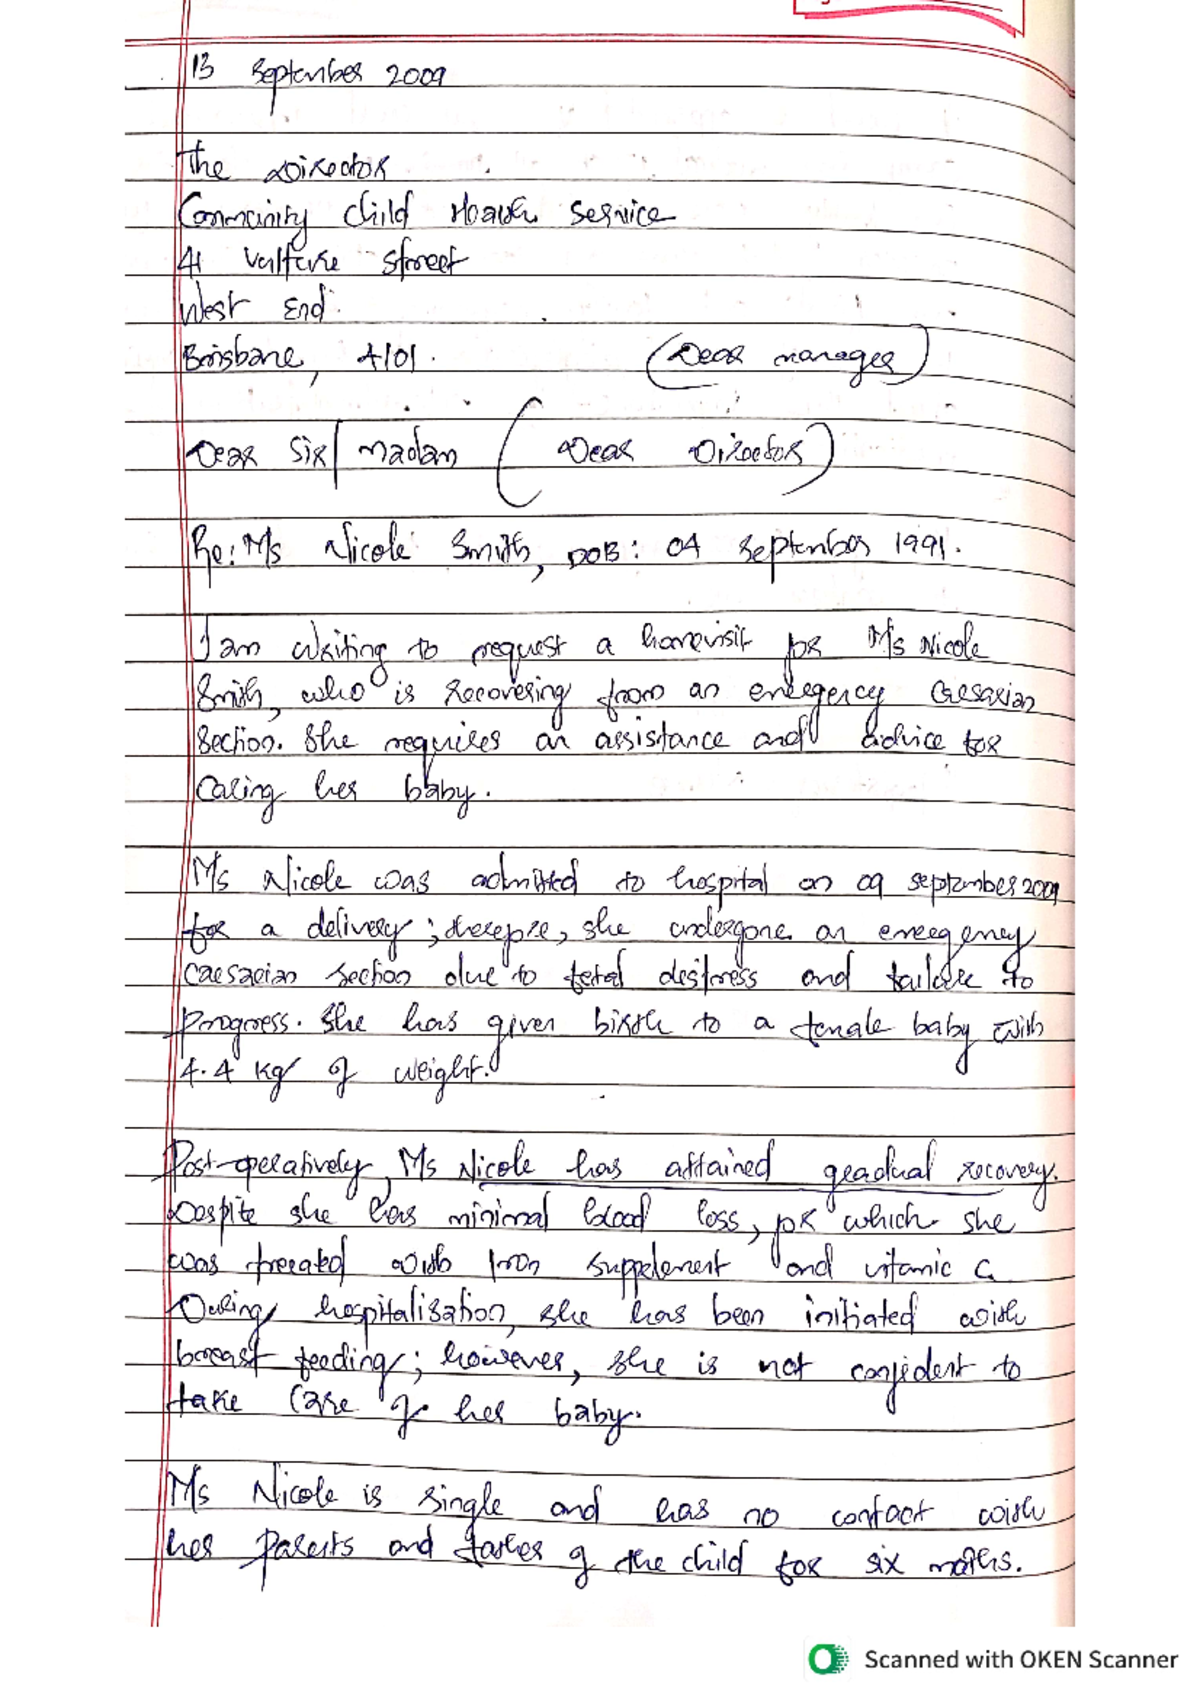 13 September 2009
The Director
Community Child Health Service
41 Vulture Street
West End.
Brisbane, 4101.
(Dear manager)
Dear Sir/madam (Dear Director)
Re: Ms Nicole Smith, DOB: 04 September 1991.
I am writing to request a homevisit for Ms Nicole
Smith, who is recovering from an emergency Caesarian
Section. She requires an assistance and advice for
Caring her baby.
Ms Nicole was admitted to hospital on 09 September 2009
for a delivery; therefore, she undergone an emergency
Caesarian Section due to fetal desitress and failure to
Progress. She has given birth to a female baby with
4.4 kg of weight.
Post-operatively, Ms Nicole has attained geadual recovery.
Despite she has minimal blood loss, for which she
was treeated with Iron supplement and vitamic C.
During hospitalisation, she has been initiated with
breast feeding; however, she is not confident to
take Care of her baby.
Ms Nicole is single and has no contact with
her Parents and father of the child for six moths.
Scanned with OKEN Scanner